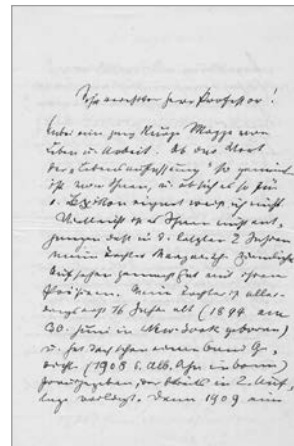 Sehr verehrter Herr Professor!
Leben u. Arbeit. Ob das Wort
der "Lebensauffassung" so gemeint
ist von Ihnen, u. ob ich es so für
s. Lexikon eignet weiß ich nicht.
Vielleicht ist es Ihnen nicht ent-
gangen daß in d. letzten 2 Jahren
meine Tochter Margarete ziemliches
Aufsehen gemacht hat mit ihren
Meine Tochter ist aller-
dings erst 16 Jahre alt (1894 am
30. Juni in New-York geboren)
u. hat doch schon einen Band Ge-
dichte (1908 b. Alb. Ahn in Bonn)
herausgegeben, der bereits in 2. Auf-
lage vorliegt. Dann 1909 ein